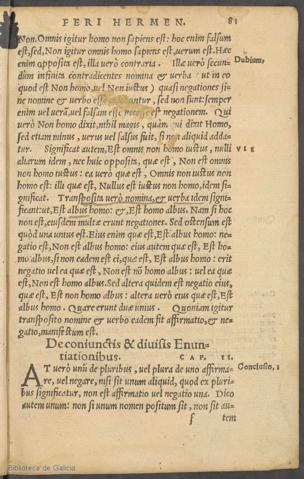 PERI HERMEN. 81
Non. Omnis igitur homo non sapiens est: hoc enim falsum
est, sed, Non igitur omnis homo sapiens est, verum est. Hæc
enim opposita est, illa verò contraria. Illæ verò secun-
Dubium,
dùm infinita contradicentes nomina & verba ut in eo
quod est Non homo, vel Non iustus) quasi negationes si-
ne nomine & verbo esse , sed non sunt: semper
enim vel verā, vel falsam esse est negationem. Qui
verò Non homo dixit, nihil magis, quàm qui dixit Homo,
sed etiam minus, verus vel falsus fuit, si non aliquid adda-
tur. Significat autem, Est omnis non homo iustus, nulli
VII
aliarum idem, nec huic opposita, quæ est, Non est omnis
non homo iustus: ea verò quæ est, Omnis non iustus non
homo est: illi quæ est, Nullus est iustus non homo, idem si-
gnificat. Transposita verò nomina, & verba idem signi-
ficant: ut, Est albus homo: &, Est homo albus. Nam si hoc
non est, eiusdem multæ erunt negationes. Sed ostensum est
quòd una unius est. Eius enim quæ est, Est albus homo: ne-
gatio est, Non est albus homo: eius autem quæ est, Est ho-
mo albus, si non eadem est ei, quæ est, Est albus homo: erit
negatio vel ea quæ est, Non est nō homo albus: vel ea quæ
est, Non est homo albus. Sed altera quidem est negatio eius,
quæ est, Est non homo albus: altera verò eius quæ est, Est
albus homo. Quare erunt duæ unius. Quoniam igitur
transposito nomine & verbo eadem fit affirmatio, & ne-
gatio, manifestum est.
De coniunctis & diuisis Enun-
tiationibus. CAP. II.
AT verò unū de pluribus, vel plura de uno affirma-
Conclusio, 1
re, vel negare, nisi sit unum aliquid, quod ex pluri-
bus significatur, non est affirmatio vel negatio una. Dico
autem unum: non si unum nomen positum sit, non sit au-
f tem
Biblioteca de Galicia